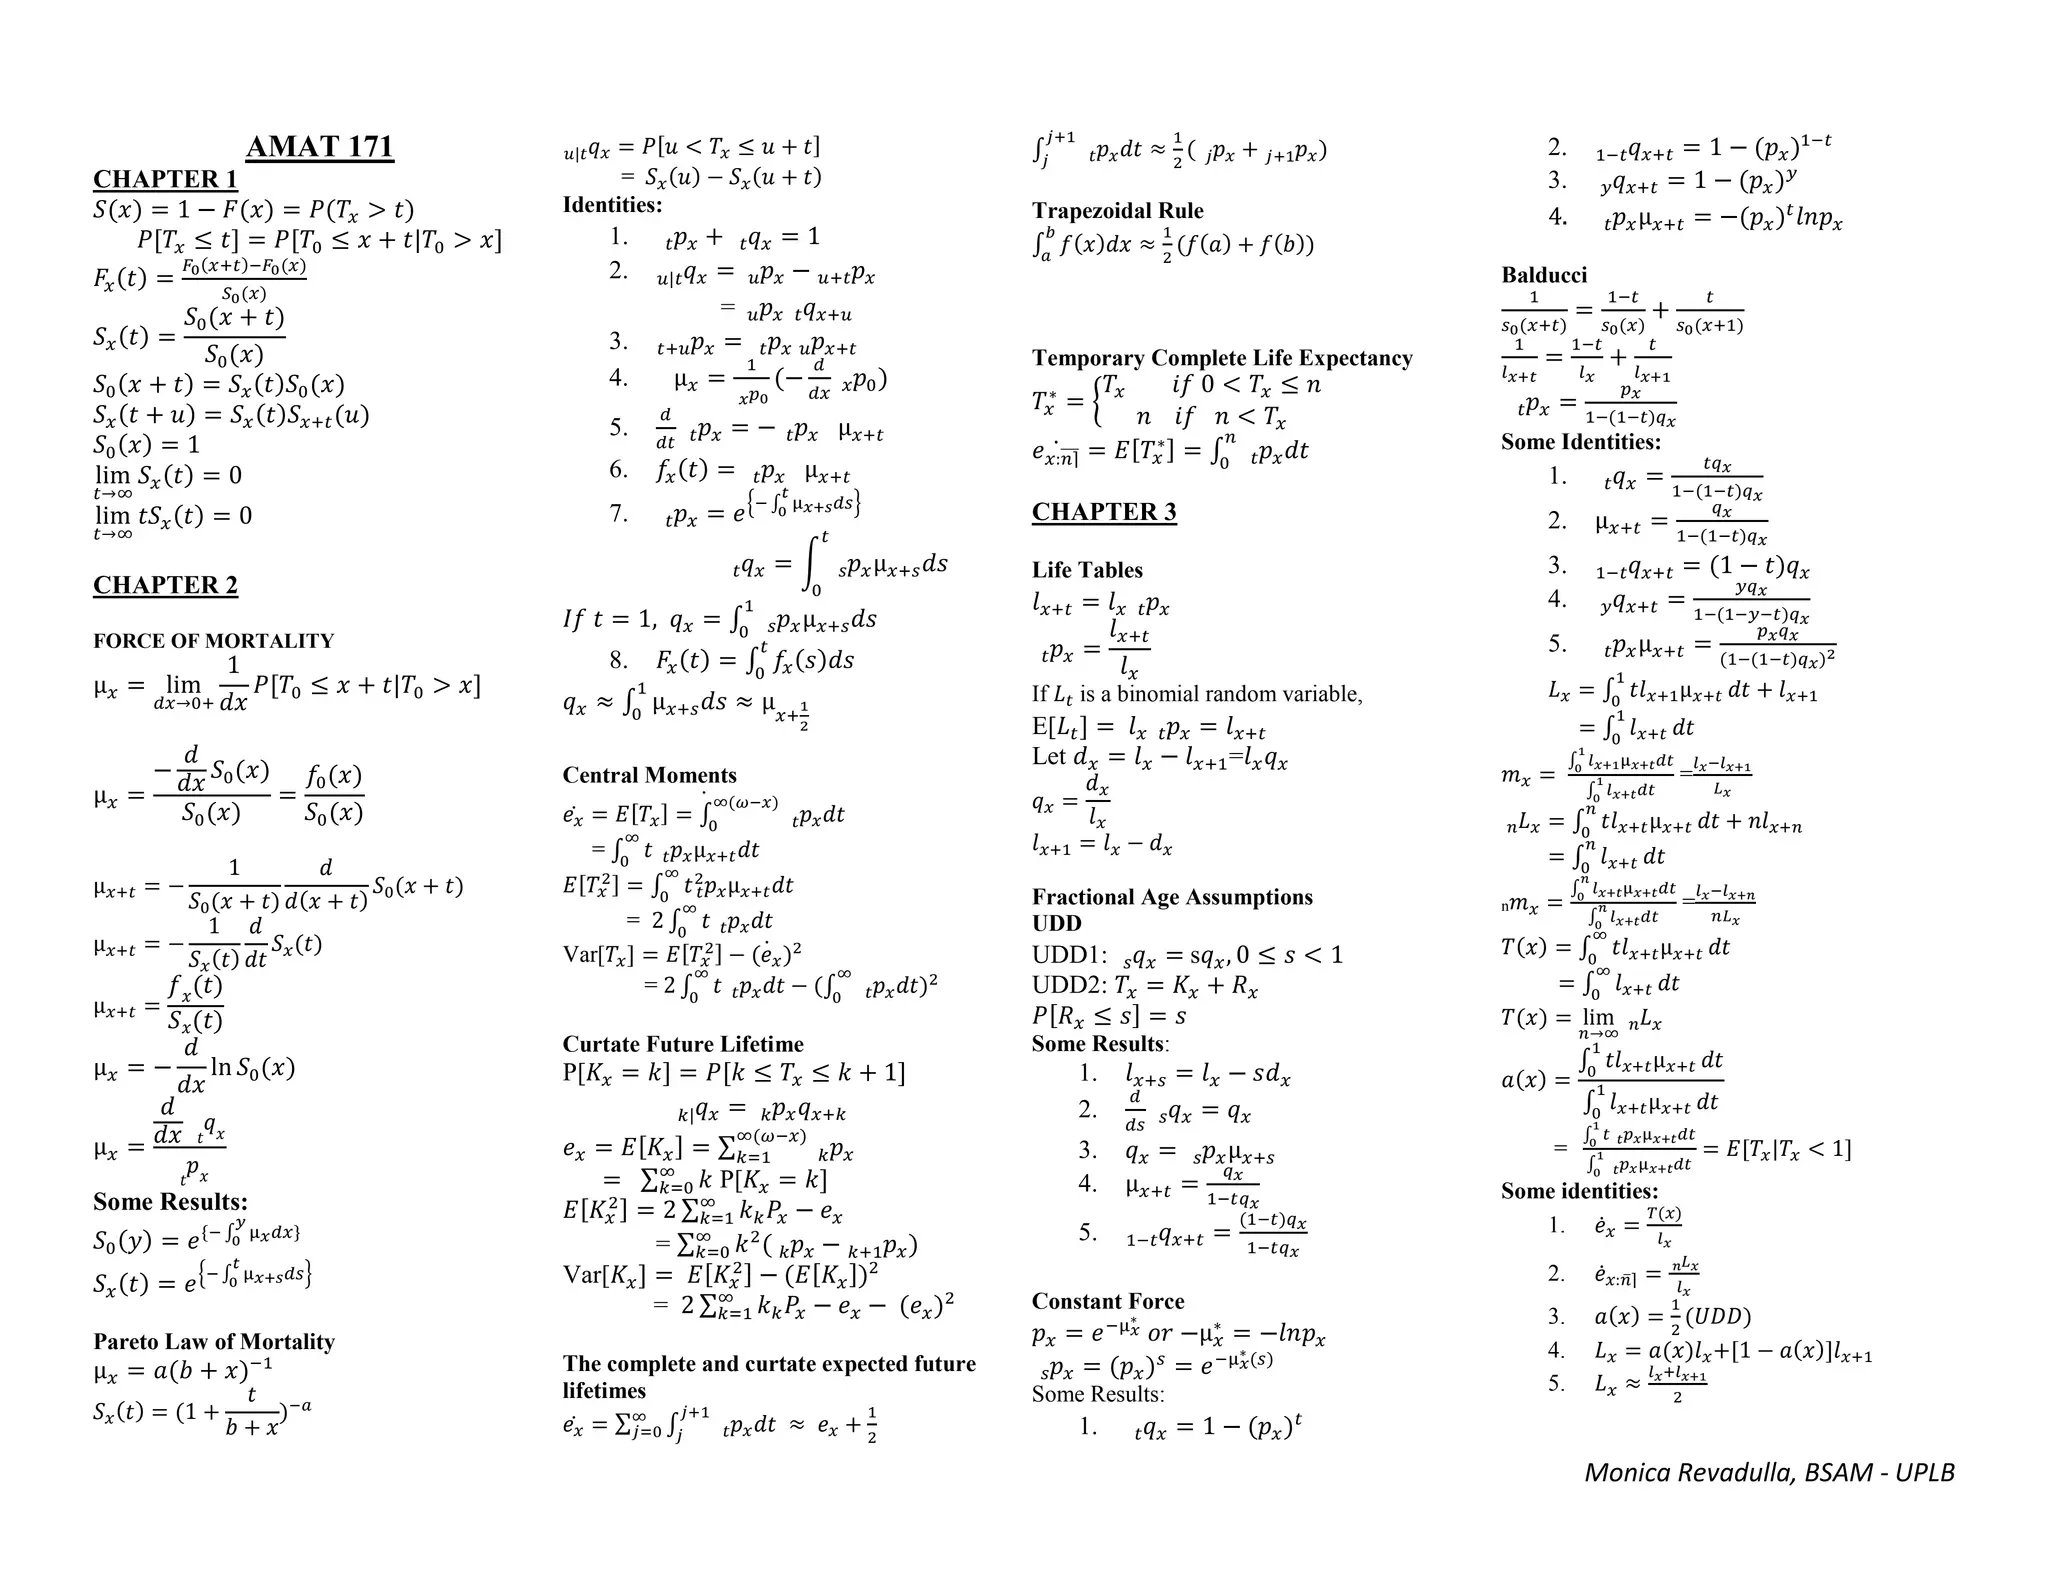 AMAT 171
CHAPTER 1
S(x) = 1 − F(x) = P(Tₓ > t)
P[Tₓ ≤ t] = P[T₀ ≤ x + t|T₀ > x]
Fₓ(t) = \frac{F₀(x+t)−F₀(x)}{S₀(x)}
Sₓ(t) = \frac{S₀(x + t)}{S₀(x)}
S₀(x + t) = Sₓ(t)S₀(x)
Sₓ(t + u) = Sₓ(t)S_{x+t}(u)
S₀(x) = 1
lim_{t→∞} Sₓ(t) = 0
lim_{t→∞} tSₓ(t) = 0
CHAPTER 2
FORCE OF MORTALITY
μₓ = lim_{dx→0+} \frac{1}{dx} P[T₀ ≤ x + t|T₀ > x]
μₓ = \frac{−\frac{d}{dx}S₀(x)}{S₀(x)} = \frac{f₀(x)}{S₀(x)}
μ_{x+t} = −\frac{1}{S₀(x + t)} \frac{d}{d(x + t)} S₀(x + t)
μ_{x+t} = −\frac{1}{Sₓ(t)} \frac{d}{dt} Sₓ(t)
μ_{x+t} = \frac{fₓ(t)}{Sₓ(t)}
μₓ = −\frac{d}{dx} ln S₀(x)
μₓ = \frac{\frac{d}{dx} ₜqₓ}{ₜpₓ}
Some Results:
S₀(y) = e^{{−∫_0^y μₓdx}}
Sₓ(t) = e^{{−∫_0^t μ_{x+s}ds}}
Pareto Law of Mortality
μₓ = a(b + x)^{−1}
Sₓ(t) = (1 + \frac{t}{b + x})^{−a}
_{u|t}qₓ = P[u < Tₓ ≤ u + t]
= Sₓ(u) − Sₓ(u + t)
Identities:
1. ₜpₓ + ₜqₓ = 1
2. _{u|t}qₓ = _upₓ − _{u+t}pₓ
= _upₓ ₜq_{x+u}
3. _{t+u}pₓ = ₜpₓ _up_{x+t}
4. μₓ = \frac{1}{ₓp₀}(−\frac{d}{dx} ₓp₀)
5. \frac{d}{dt} ₜpₓ = − ₜpₓ μ_{x+t}
6. fₓ(t) = ₜpₓ μ_{x+t}
7. ₜpₓ = e^{{−∫_0^t μ_{x+s}ds}}
ₜqₓ = ∫_0^t ₛpₓμ_{x+s}ds
If t = 1, qₓ = ∫_0^1 ₛpₓμ_{x+s}ds
8. Fₓ(t) = ∫_0^t fₓ(s)ds
qₓ ≈ ∫_0^1 μ_{x+s}ds ≈ μ_{x+\frac{1}{2}}
Central Moments
ėₓ = E[Tₓ] = ∫_0^{∞(ω−x)} ₜpₓdt
= ∫_0^∞ t ₜpₓμ_{x+t}dt
E[Tₓ²] = ∫_0^∞ t² ₜpₓμ_{x+t}dt
= 2 ∫_0^∞ t ₜpₓdt
Var[Tₓ] = E[Tₓ²] − (ėₓ)²
= 2 ∫_0^∞ t ₜpₓdt − (∫_0^∞ ₜpₓdt)²
Curtate Future Lifetime
P[Kₓ = k] = P[k ≤ Tₓ ≤ k + 1]
_{k|}qₓ = ₖpₓq_{x+k}
eₓ = E[Kₓ] = ∑_{k=1}^{∞(ω−x)} ₖpₓ
= ∑_{k=0}^∞ k P[Kₓ = k]
E[Kₓ²] = 2 ∑_{k=1}^∞ kₖPₓ − eₓ
= ∑_{k=0}^∞ k²( ₖpₓ − _{k+1}pₓ)
Var[Kₓ] = E[Kₓ²] − (E[Kₓ])²
= 2 ∑_{k=1}^∞ kₖPₓ − eₓ − (eₓ)²
The complete and curtate expected future
lifetimes
ėₓ = ∑_{j=0}^∞ ∫_j^{j+1} ₜpₓdt ≈ eₓ + \frac{1}{2}
∫_j^{j+1} ₜpₓdt ≈ \frac{1}{2}( ⱼpₓ + _{j+1}pₓ)
Trapezoidal Rule
∫_a^b f(x)dx ≈ \frac{1}{2}(f(a) + f(b))
Temporary Complete Life Expectancy
Tₓ* = { Tₓ if 0 < Tₓ ≤ n
n if n < Tₓ
ė_{x:n̅|} = E[Tₓ*] = ∫_0^n ₜpₓdt
CHAPTER 3
Life Tables
l_{x+t} = lₓ ₜpₓ
ₜpₓ = \frac{l_{x+t}}{lₓ}
If Lₜ is a binomial random variable,
E[Lₜ] = lₓ ₜpₓ = l_{x+t}
Let dₓ = lₓ − l_{x+1}=lₓqₓ
qₓ = \frac{dₓ}{lₓ}
l_{x+1} = lₓ − dₓ
Fractional Age Assumptions
UDD
UDD1: ₛqₓ = sqₓ, 0 ≤ s < 1
UDD2: Tₓ = Kₓ + Rₓ
P[Rₓ ≤ s] = s
Some Results:
1. l_{x+s} = lₓ − sdₓ
2. \frac{d}{ds} ₛqₓ = qₓ
3. qₓ = ₛpₓμ_{x+s}
4. μ_{x+t} = \frac{qₓ}{1−tqₓ}
5. _{1−t}q_{x+t} = \frac{(1−t)qₓ}{1−tqₓ}
Constant Force
pₓ = e^{−μₓ*} or −μₓ* = −lnpₓ
ₛpₓ = (pₓ)^s = e^{−μₓ*(s)}
Some Results:
1. ₜqₓ = 1 − (pₓ)^t
2. _{1−t}q_{x+t} = 1 − (pₓ)^{1−t}
3. _yq_{x+t} = 1 − (pₓ)^y
4. ₜpₓμ_{x+t} = −(pₓ)^t lnpₓ
Balducci
\frac{1}{s₀(x+t)} = \frac{1−t}{s₀(x)} + \frac{t}{s₀(x+1)}
\frac{1}{l_{x+t}} = \frac{1−t}{lₓ} + \frac{t}{l_{x+1}}
ₜpₓ = \frac{pₓ}{1−(1−t)qₓ}
Some Identities:
1. ₜqₓ = \frac{tqₓ}{1−(1−t)qₓ}
2. μ_{x+t} = \frac{qₓ}{1−(1−t)qₓ}
3. _{1−t}q_{x+t} = (1 − t)qₓ
4. _yq_{x+t} = \frac{yqₓ}{1−(1−y−t)qₓ}
5. ₜpₓμ_{x+t} = \frac{pₓqₓ}{(1−(1−t)qₓ)²}
Lₓ = ∫_0^1 tl_{x+1}μ_{x+t} dt + l_{x+1}
= ∫_0^1 l_{x+t} dt
mₓ = \frac{∫_0^1 l_{x+1}μ_{x+t}dt}{∫_0^1 l_{x+t}dt} = \frac{lₓ−l_{x+1}}{Lₓ}
ₙLₓ = ∫_0^n tl_{x+t}μ_{x+t} dt + nl_{x+n}
= ∫_0^n l_{x+t} dt
ₙmₓ = \frac{∫_0^n l_{x+t}μ_{x+t}dt}{∫_0^n l_{x+t}dt} = \frac{lₓ−l_{x+n}}{nLₓ}
T(x) = ∫_0^∞ tl_{x+t}μ_{x+t} dt
= ∫_0^∞ l_{x+t} dt
T(x) = lim_{n→∞} ₙLₓ
a(x) = \frac{∫_0^1 tl_{x+t}μ_{x+t} dt}{∫_0^1 l_{x+t}μ_{x+t} dt}
= \frac{∫_0^1 t ₜpₓμ_{x+t}dt}{∫_0^1 ₜpₓμ_{x+t}dt} = E[Tₓ|Tₓ < 1]
Some identities:
1. ėₓ = \frac{T(x)}{lₓ}
2. ė_{x:n̅|} = \frac{ₙLₓ}{lₓ}
3. a(x) = \frac{1}{2}(UDD)
4. Lₓ = a(x)lₓ+[1 − a(x)]l_{x+1}
5. Lₓ ≈ \frac{lₓ+l_{x+1}}{2}
Monica Revadulla, BSAM - UPLB